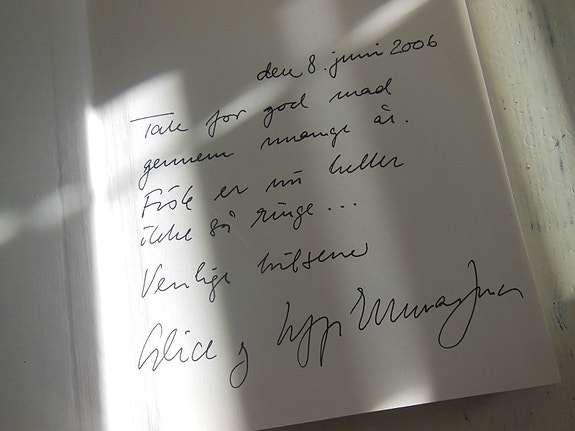 den 8. juni 2006
Tak for god mad
gennem mange år.
Fisk er nu heller
ikke så ringe...
Venlige hilsener
Alice og